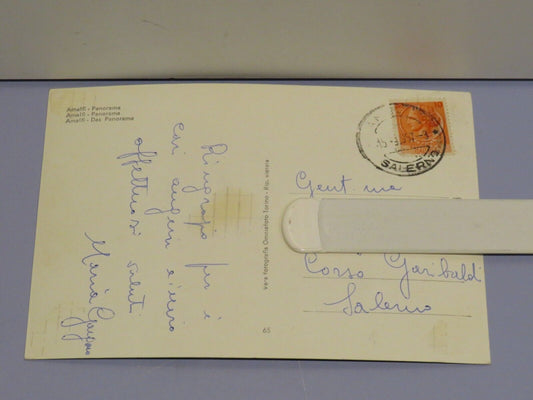 Amalfi - Panorama
Amalfi - Panorame
Amalfi - Das Panorama
Ringrazio per i
cari auguri e invio
affettuosi saluti
Maria
vera fotografia Omniafoto Torino - Rip. vietata
65
SALERNO
Gent.ma
Corso Garibaldi
Salerno